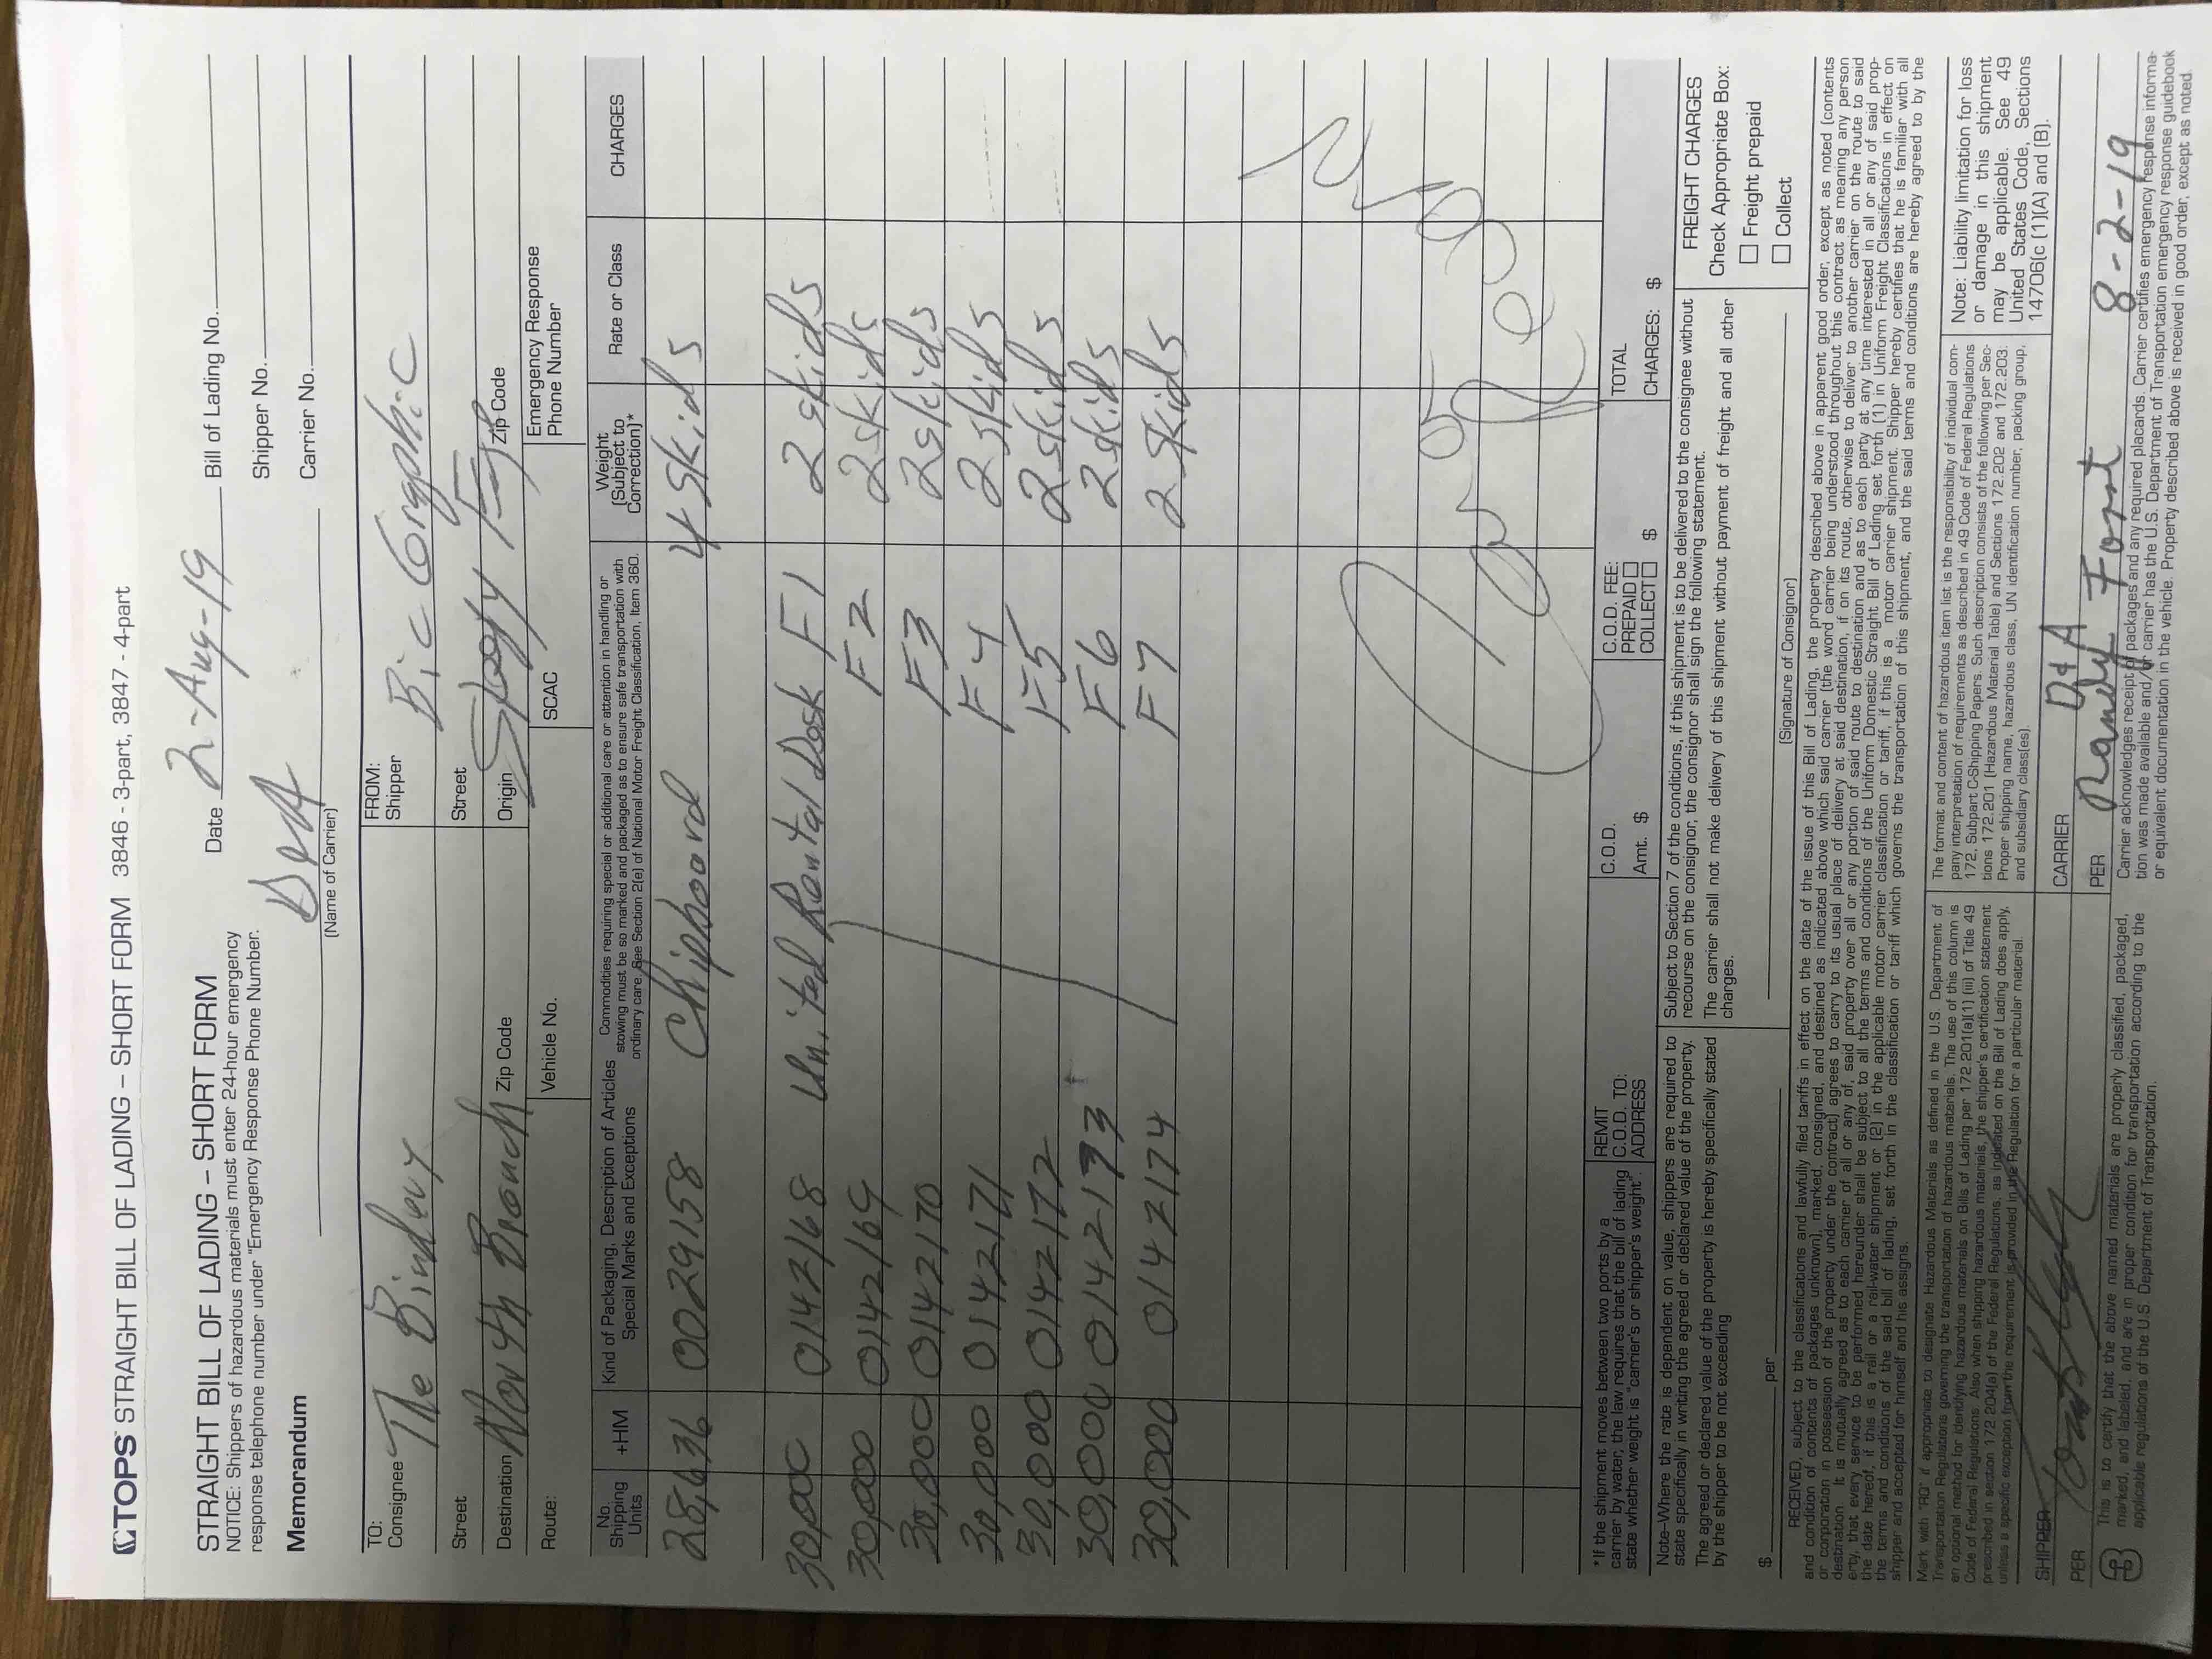 TOPS STRAIGHT BILL OF LADING – SHORT FORM 3846 - 3-part, 3847 - 4-part
STRAIGHT BILL OF LADING – SHORT FORM
NOTICE: Shippers of hazardous materials must enter 24-hour emergency
response telephone number under "Emergency Response Phone Number.
Date 2-Aug-19
Bill of Lading No.
Shipper No.
Carrier No.
Memorandum
D&A
(Name of Carrier)
TO:
Consignee The Bindery
Street
Destination North Branch Zip Code
Route:
Vehicle No.
FROM:
Shipper Bic Graphic
Street
Origin Sleepy Eye Zip Code
SCAC
Emergency Response
Phone Number
No.
Shipping
Units
+HM
Kind of Packaging, Description of Articles
Special Marks and Exceptions
Commodities requiring special or additional care or attention in handling or
stowing must be so marked and packaged as to ensure safe transportation with
ordinary care. See Section 2(e) of National Motor Freight Classification, Item 360.
Weight
(Subject to
Correction)*
Rate or Class
CHARGES
28,636 0029158 Chipboard 4 skids
30,000 0142168 United Rental Desk F1 2 skids
30,000 0142169 F2 2 skids
30,000 0142170 F3 2 skids
30,000 0142171 F4 2 skids
30,000 0142172 F5 2 skids
30,000 0142173 F6 2 skids
30,000 0142174 F7 2 skids
*If the shipment moves between two ports by a
carrier by water, the law requires that the bill of lading
state whether weight is "carrier's or shipper's weight".
REMIT
C.O.D. TO:
ADDRESS
C.O.D.
Amt. $
C.O.D. FEE:
PREPAID
COLLECT $
TOTAL
CHARGES: $
Note–Where the rate is dependent on value, shippers are required to
state specifically in writing the agreed or declared value of the property.
The agreed or declared value of the property is hereby specifically stated
by the shipper to be not exceeding
$ per
Subject to Section 7 of the conditions, if this shipment is to be delivered to the consignee without
recourse on the consignor, the consignor shall sign the following statement.
The carrier shall not make delivery of this shipment without payment of freight and all other
charges.
(Signature of Consignor)
FREIGHT CHARGES
Check Appropriate Box:
Freight prepaid
Collect
RECEIVED, subject to the classifications and lawfully filed tariffs in effect on the date of the issue of this Bill of Lading, the property described above in apparent good order, except as noted (contents
and condition of contents of packages unknown), marked, consigned, and destined as indicated above which said carrier (the word carrier being understood throughout this contract as meaning any person
or corporation in possession of the property under the contract) agrees to carry to its usual place of delivery at said destination, if on its route, otherwise to deliver to another carrier on the route to said
destination. It is mutually agreed as to each carrier of all or any of, said property over all or any portion of said route to destination and as to each party at any time interested in all or any of said prop-
erty, that every service to be performed hereunder shall be subject to all the terms and conditions of the Uniform Domestic Straight Bill of Lading set forth (1) in Uniform Freight Classifications in effect on
the date hereof, if this is a rail or a rail-water shipment, or (2) in the applicable motor carrier classification or tariff, if this is a motor carrier shipment. Shipper hereby certifies that he is familiar with all
the terms and conditions of the said bill of lading, set forth in the classification or tariff which governs the transportation of this shipment, and the said terms and conditions are hereby agreed to by the
shipper and accepted for himself and his assigns.
Mark with "RQ" if appropriate to designate Hazardous Materials as defined in the U.S. Department of
Transportation Regulations governing the transportation of hazardous materials. The use of this column is
an optional method for identifying hazardous materials on Bills of Lading per 172.201(a)(1)(iii) of Title 49
Code of Federal Regulations. Also when shipping hazardous materials, the shipper's certification statement
prescribed in section 172.204(a) of the Federal Regulations, as indicated on the Bill of Lading does apply,
unless a specific exception from the requirement is provided in the Regulation for a particular material.
The format and content of hazardous item list is the responsibility of individual com-
pany interpretation of requirements as described in 49 Code of Federal Regulations
172, Subpart C-Shipping Papers. Such description consists of the following per Sec-
tions 172.201 (Hazardous Material Table) and Sections 172.202 and 172.203:
Proper shipping name, hazardous class, UN identification number, packing group,
and subsidiary class(es).
Note: Liability limitation for loss
or damage in this shipment
may be applicable. See 49
United States Code, Sections
14706(c (1)(A) and (B).
SHIPPER
PER
This is to certify that the above named materials are properly classified, packaged,
marked, and labeled, and are in proper condition for transportation according to the
applicable regulations of the U.S. Department of Transportation.
CARRIER D&A
PER Randy Forst 8-2-19
Carrier acknowledges receipt of packages and any required placards. Carrier certifies emergency response informa-
tion was made available and/or carrier has the U.S. Department of Transportation emergency response guidebook
or equivalent documentation in the vehicle. Property described above is received in good order, except as noted.